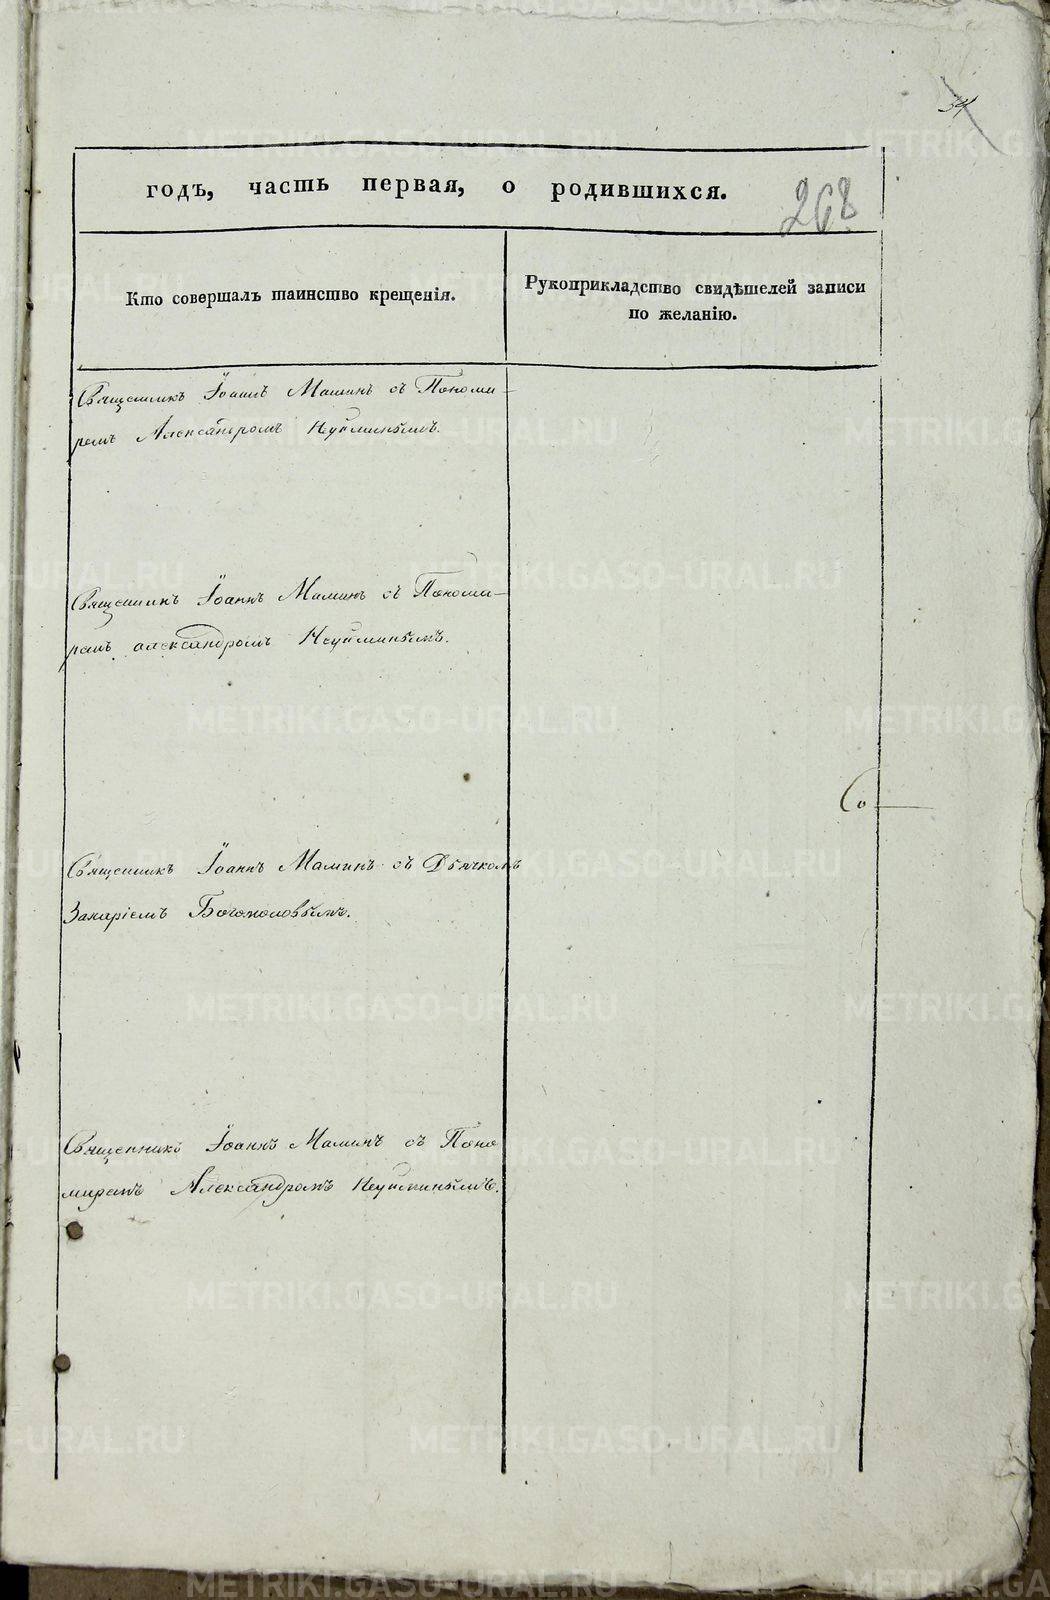 34
годъ, часть первая, о родившихся.
268
Кто совершалъ таинство крещенія.
Рукоприкладство свидѣтелей записи
по желанію.
Священникъ Іоаннъ Маминъ съ Пономи-
ремъ Александромъ Неуйминымъ.
Священникъ Іоаннъ Маминъ съ Пономи-
ремъ александромъ Неуйминымъ.
Со
Священникъ Іоаннъ Маминъ съ Дьячкомъ
Захаріемъ Богомоловымъ.
Священникъ Іоаннъ Маминъ съ Поно
миремъ Александромъ Неуйминымъ.
METRIKI.GASO-URAL.RU